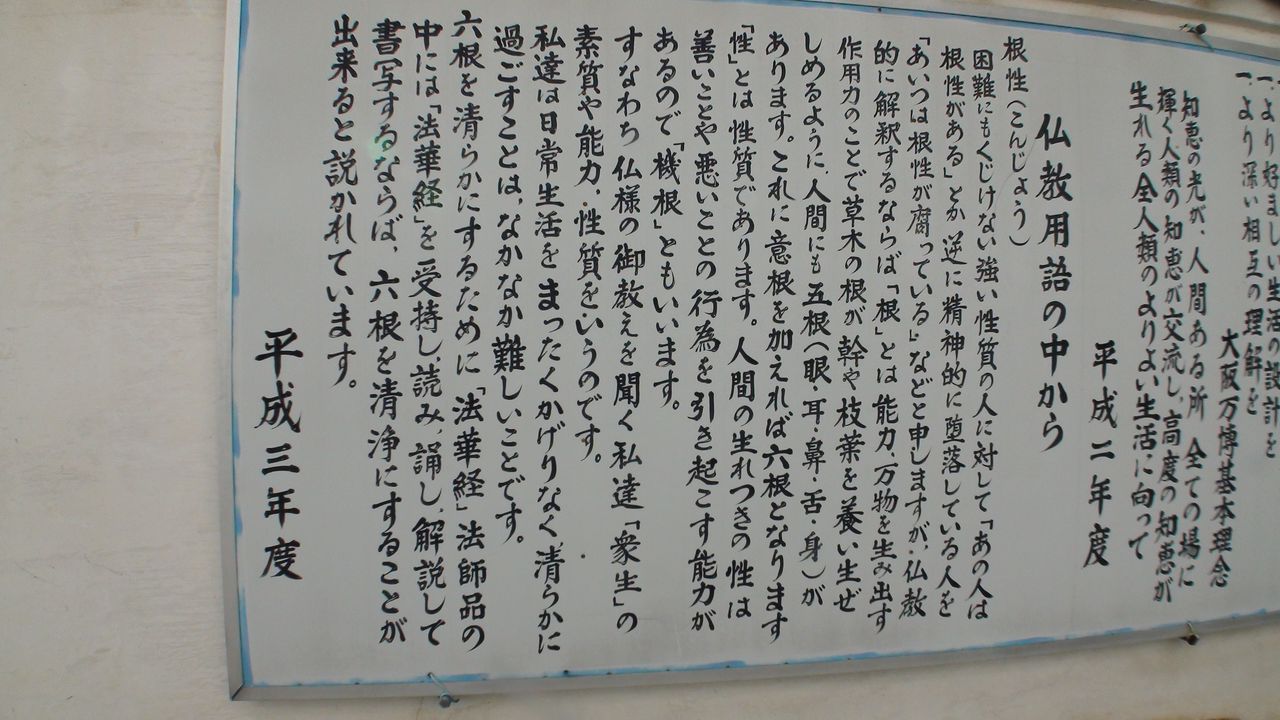 一、より好ましい生活の設計を
一、より深い相互の理解を
大阪万博基本理念
知恵の光が、人間ある所 全ての場に
輝く人類の知恵が交流し、高度の知恵が
生れる全人類のよりよい生活に向って
平成二年度
仏教用語の中から
根性(こんじょう)
困難にもくじけない強い性質の人に対して「あの人は
根性がある」とか 逆に精神的に堕落している人を
「あいつは根性が腐っている」などと申しますが、仏教
的に解釈するならば「根」とは能力、万物を生み出す
作用力のことで草木の根が幹や枝葉を養い生ぜ
しめるように、人間にも五根(眼・耳・鼻・舌・身)が
あります。これに意根を加えれば六根となります
「性」とは性質であります。人間の生れつきの性は
善いことや悪いことの行為を引き起こす能力が
あるので「機根」ともいいます。
すなわち 仏様の御教えを聞く私達「衆生」の
素質や能力、性質をいうのです。
私達は日常生活をまったくかげりなく、清らかに
過ごすことは、なかなか難しいことです。
六根を清らかにするために「法華経」法師品の
中には「法華経」を受持し、読み、誦し、解説して
書写するならば、六根を清浄にすることが
出来ると説かれています。
平成三年度